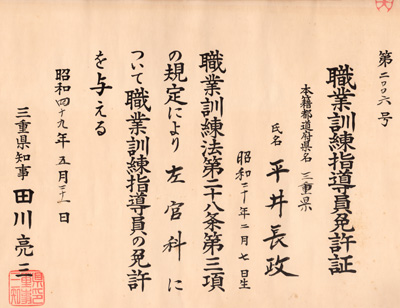 第二〇〇六号
職業訓練指導員免許証
本籍都道府県名 三重県
氏名 平井長政
昭和二十年二月七日生
職業訓練法第二十八条第三項
の規定により左官科に
ついて職業訓練指導員の免許
を与える
昭和四十九年五月三十一日
三重県知事 田川亮三